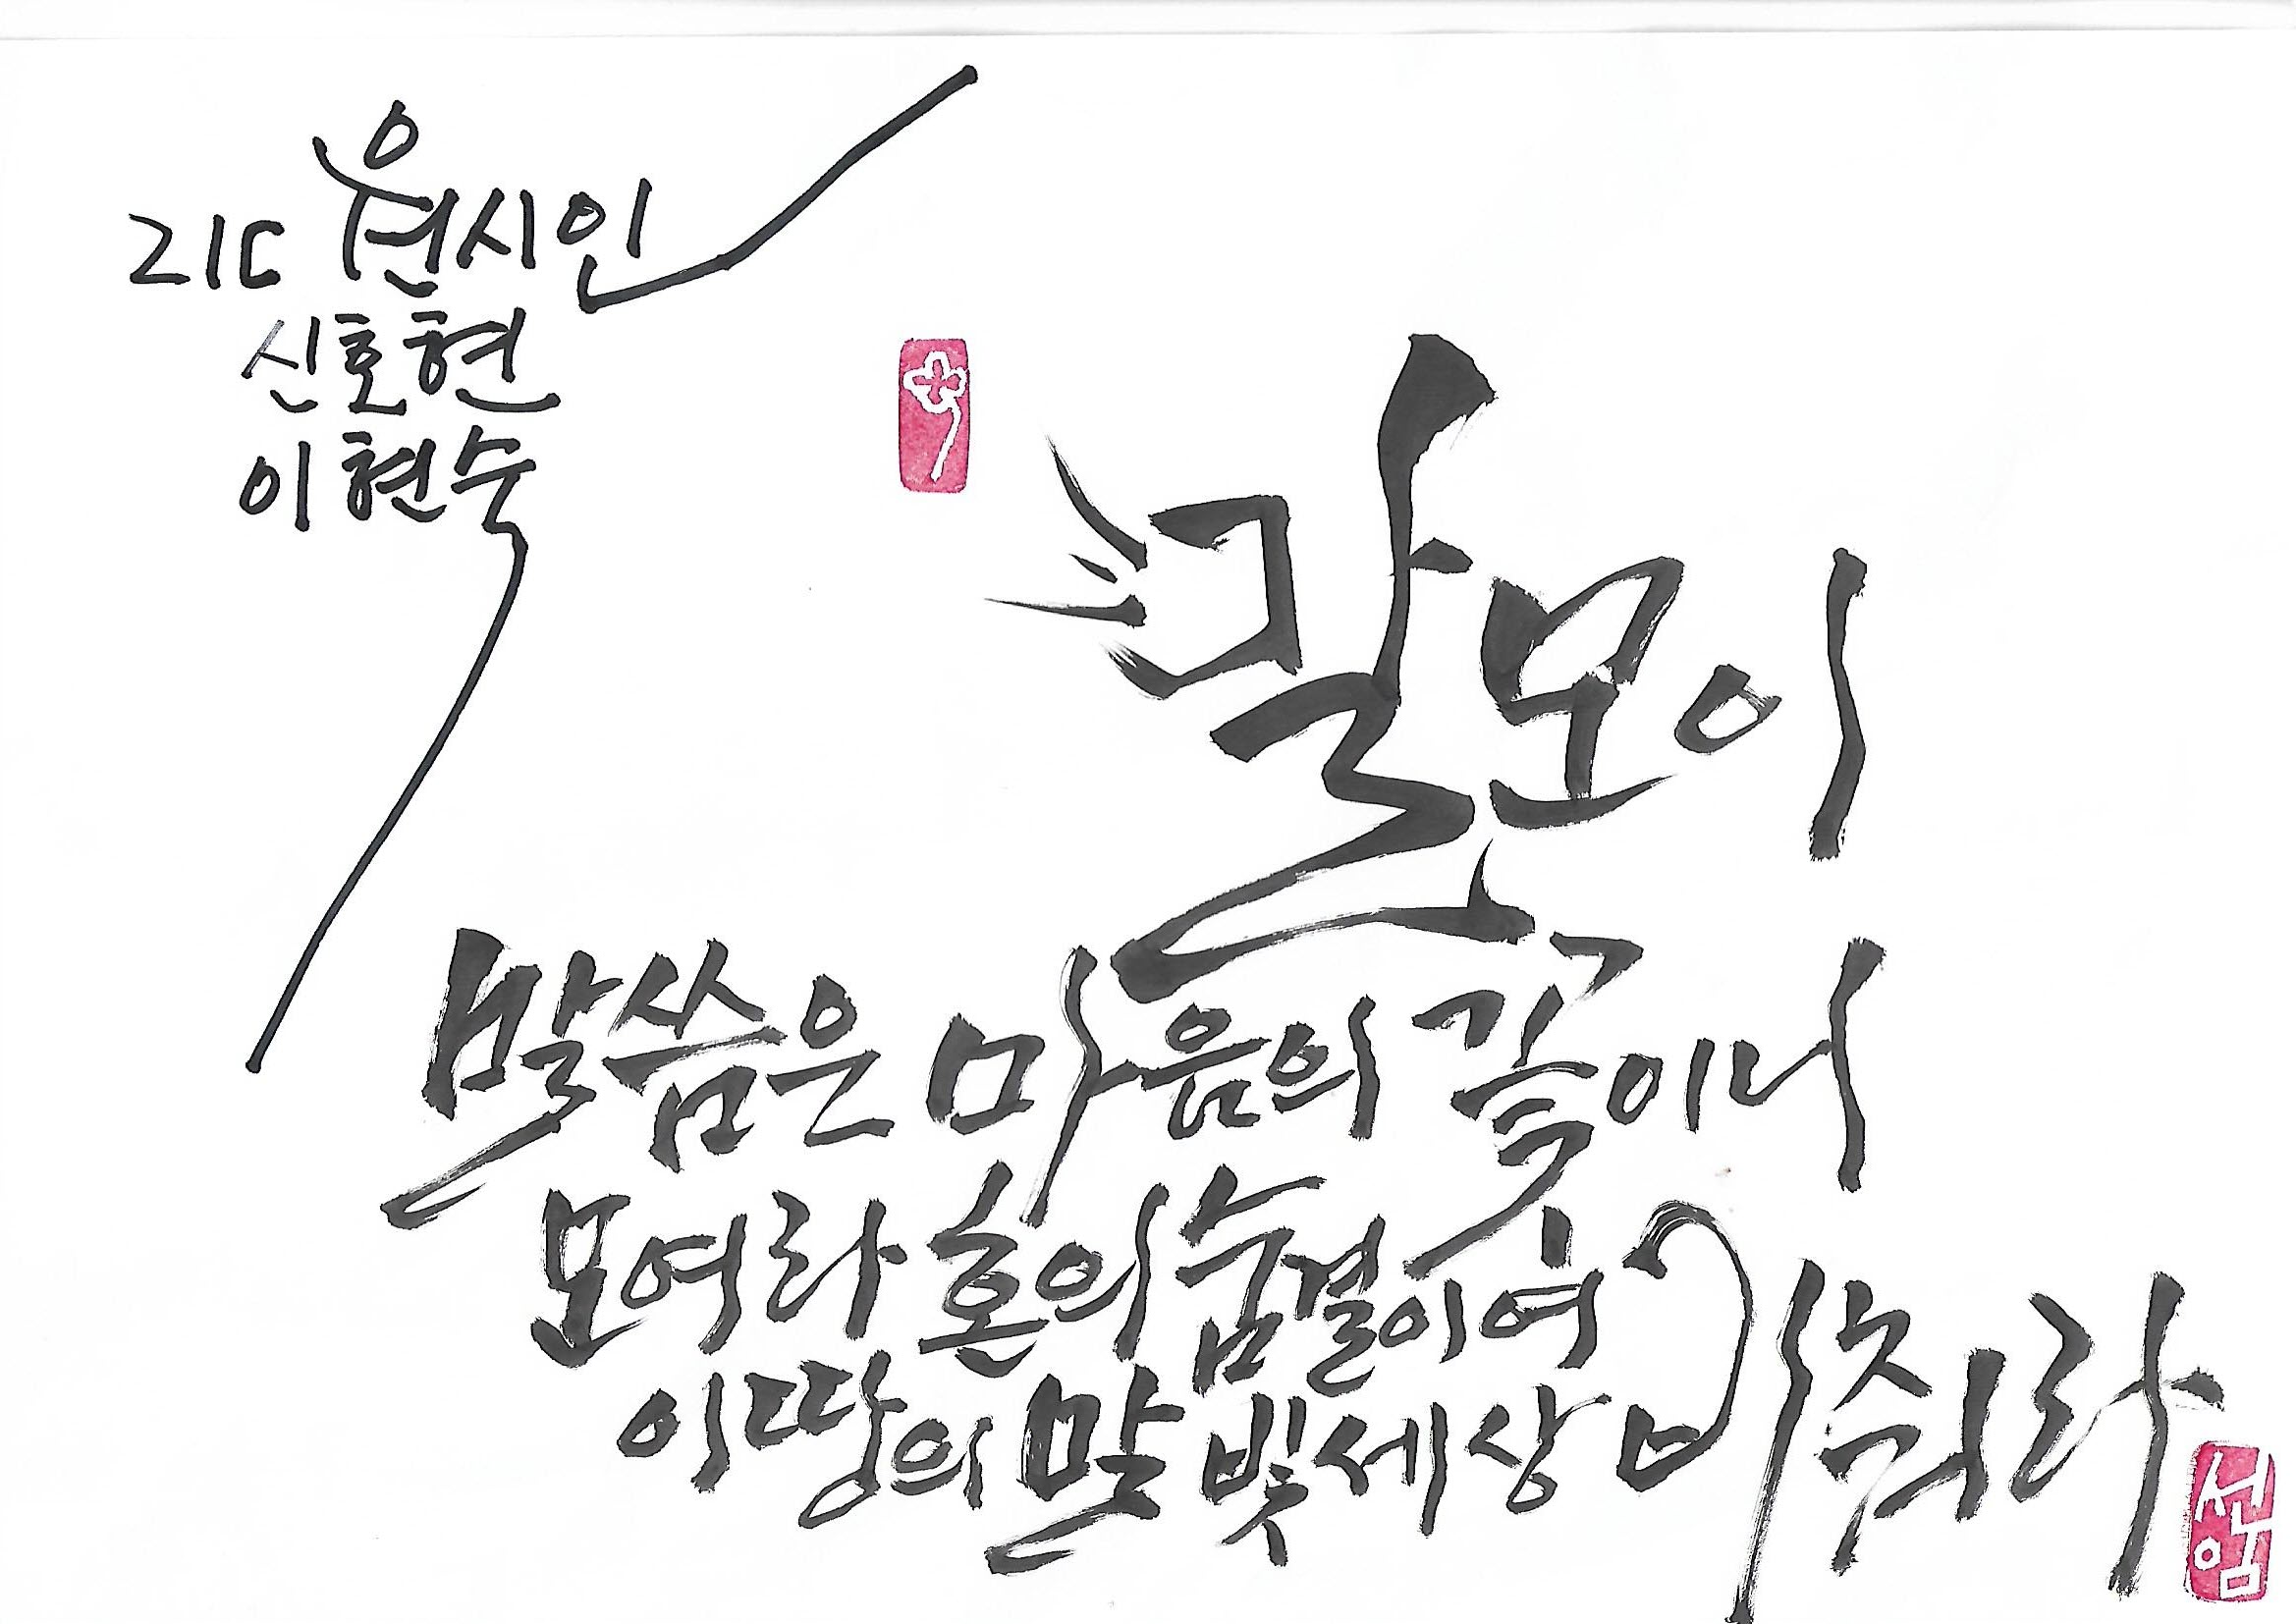 21C 원시인
신호현
이현숙
말모이
말씀은 마음의 꽃이니
모여라 혼의 숨결이여
이 땅의 말 빛 세상 비춰라